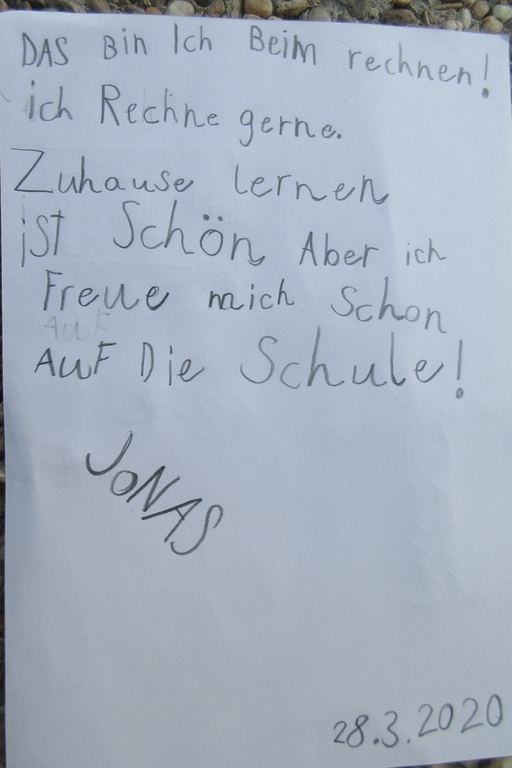 DAS Bin Ich Beim rechnen!
ich Rechne gerne.
Zuhause lernen
ist Schön Aber ich
Freue mich Schon
AUF
AUF Die Schule!
JONAS
28.3.2020